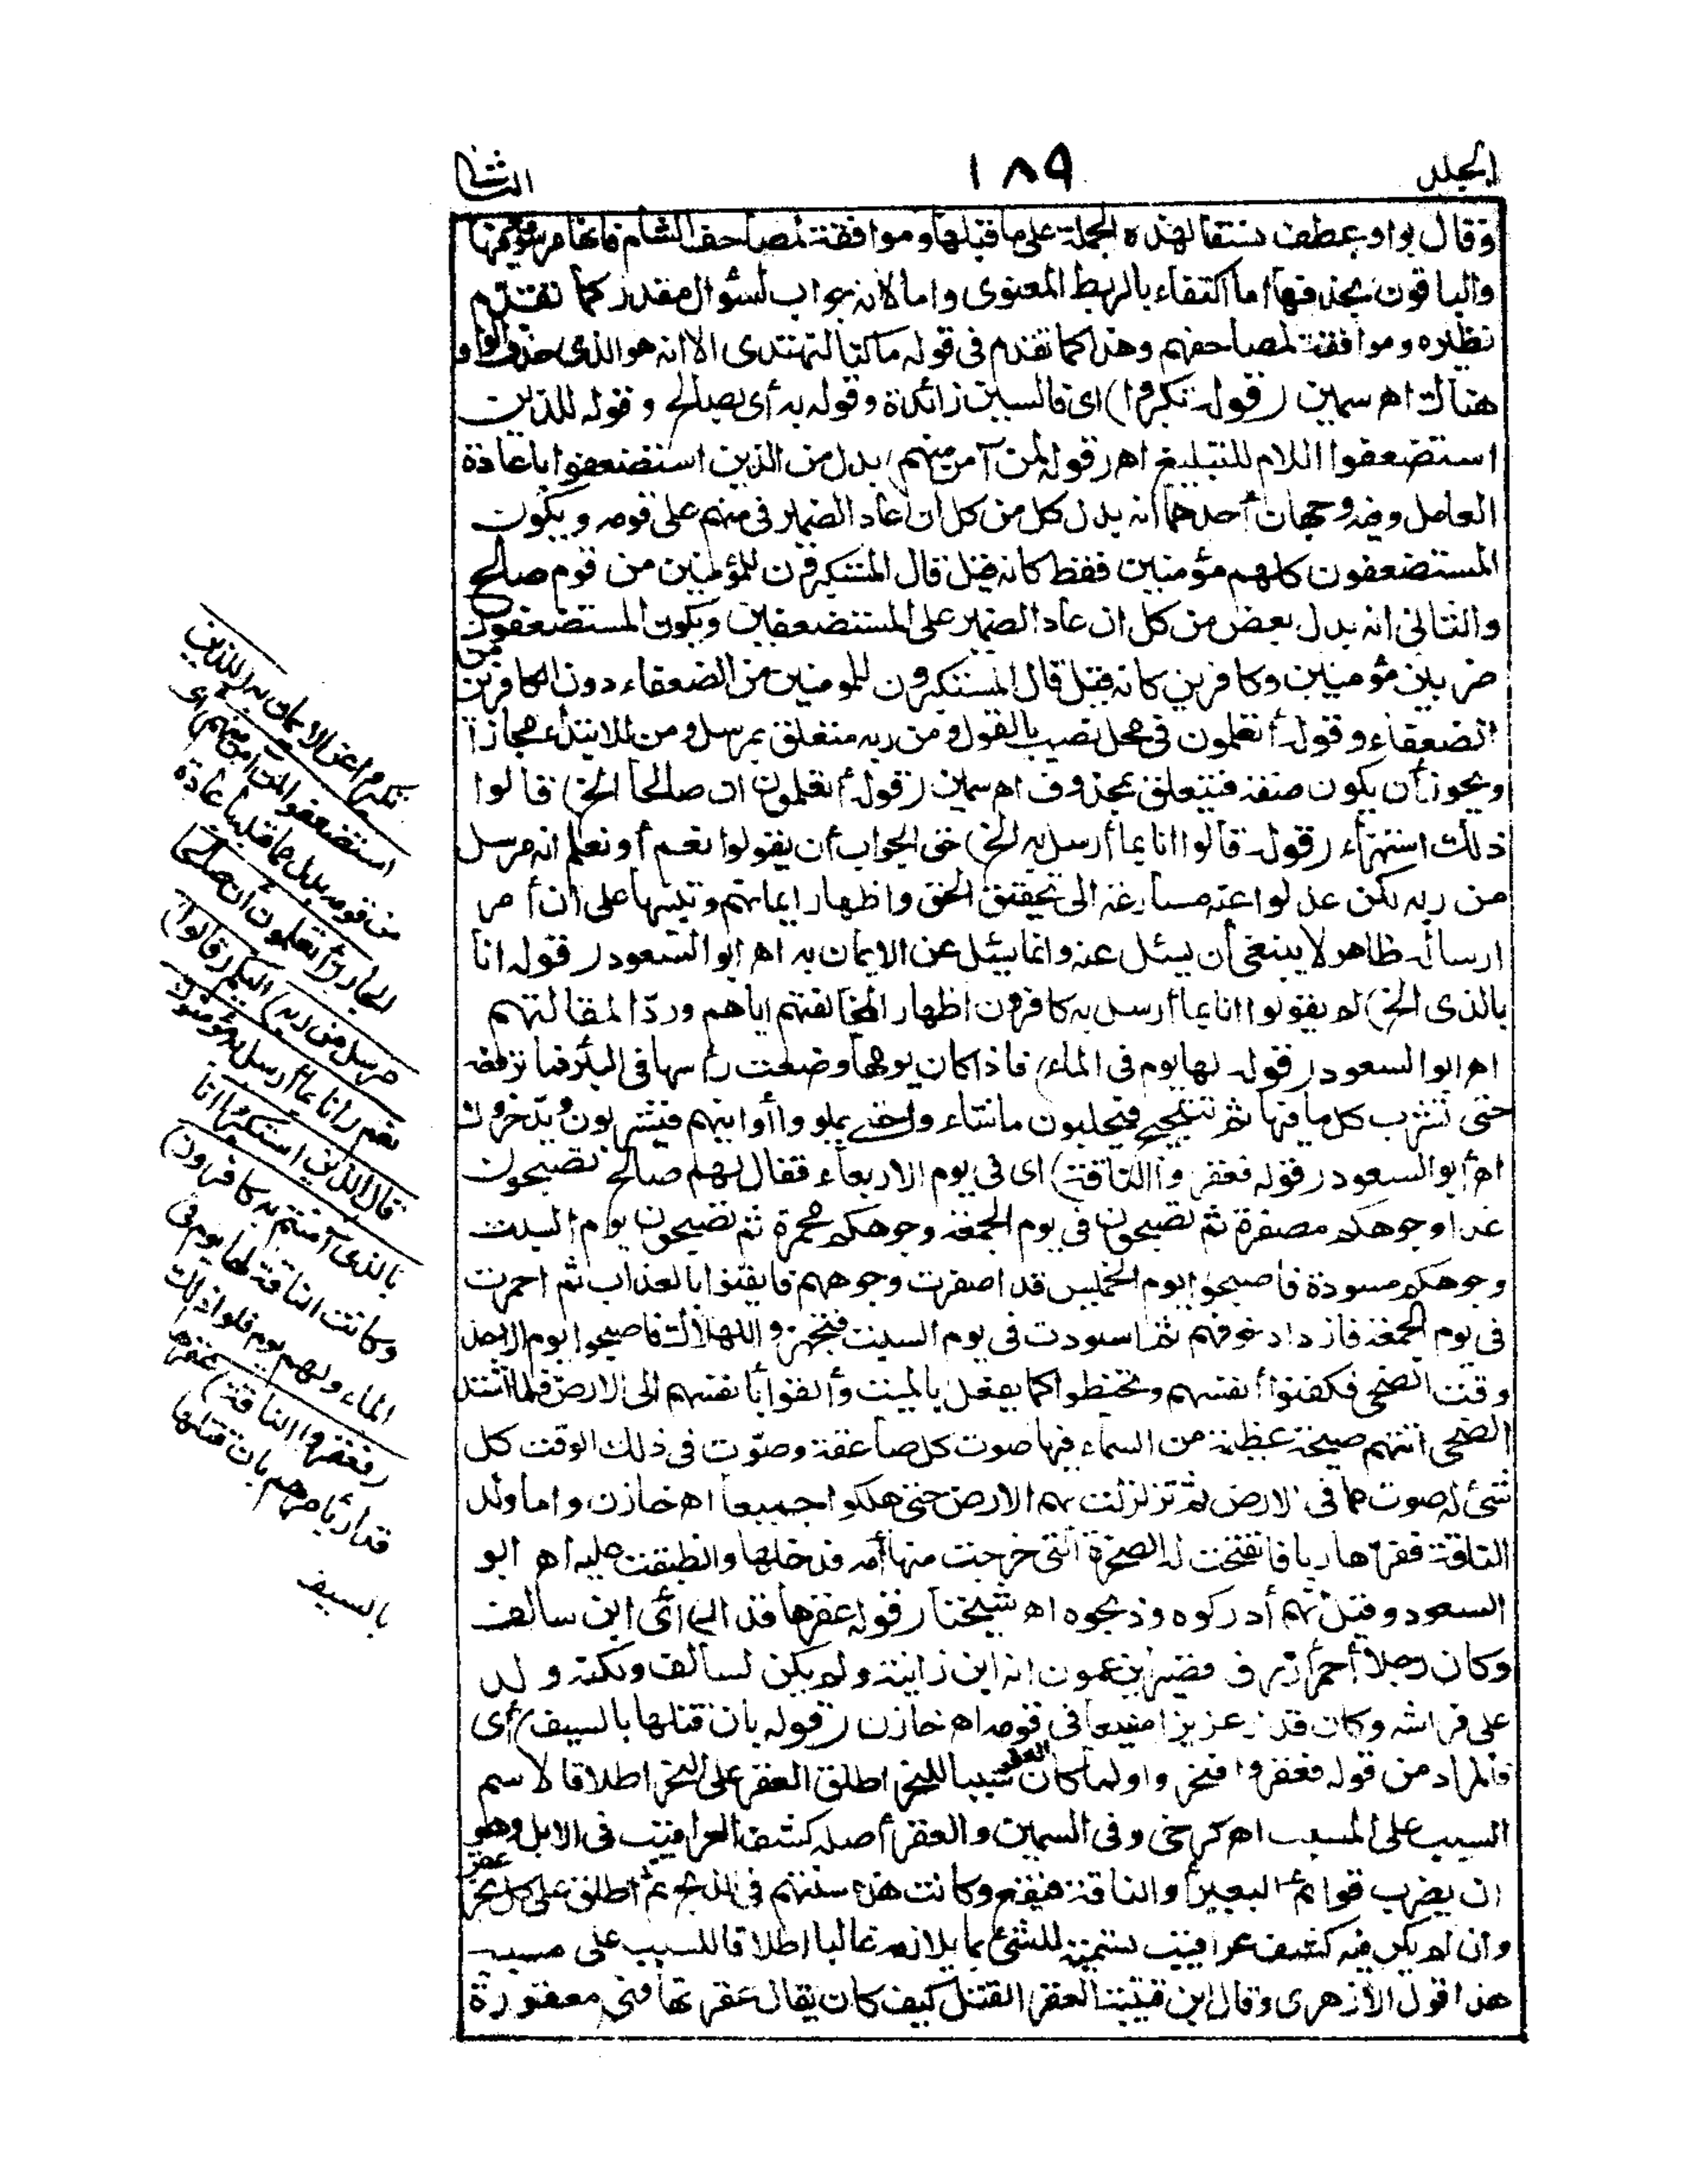 الجلد ١٨٩ الثانى
وقال بواو عطف نسقا لهذه الجملة على ما قبلها وموافقة لمصاحف الشام فانها مرسومة فيها
والباقون بحذفها اما اكتفاء بالربط المعنوى واما لانه جواب لسؤال مقدر كما تقدم
نظيره وموافقة لمصاحفهم وهذا كما تقدم فى قوله ما كنا لنهتدى الا انه هو الذى حذف الواو
هناك اهـ سمين (قوله تكبروا) اى فالسين زائدة وقوله به أى بصالح وقوله للذين
استضعفوا اللام للتبليغ اهـ (قوله لمن آمن منهم) بدل من الذين استضعفوا باعادة
العامل وفيه وجهان أحدهما انه بدل كل من كل ان عاد الضمير فى منهم على قومه ويكون
المستضعفون كلهم مؤمنين فقط كانه قيل قال المستكبرون للمؤمنين من قوم صالح
والثانى انه بدل بعض من كل ان عاد الضمير على المستضعفين ويكون المستضعفون
ضربين مؤمنين وكافرين كانه قيل قال المستكبرون للمومنين من الضعفاء دون الكافرين من
الضعفاء وقوله أتعلمون فى محل نصب بالقول ومن ربه متعلق بمرسل ومن للابتداء مجازا
ويجوز أن يكون صفة فيتعلق بمحذوف اهـ سمين (قوله أتعلمون ان صالحا الخ) قالوا
ذلك استهزاء (قوله قالوا انا بما أرسل به الخ) حق الجواب أن يقولوا نعم أو نعلم انه مرسل
من ربه لكن عدلوا عنه مسارعة الى تحقيق الحق واظهار ايمانهم وتنبيها على أن أمر
ارساله ظاهر لا ينبغى أن يسئل عنه وانما يسئل عن الايمان به اهـ ابو السعود (قوله انا
بالذى الخ) لم يقولوا انا بما أرسل به كافرون اظهار المخالفتهم اياهم وردّا لمقالتهم
اهـ ابو السعود (قوله لها يوم فى الماء) فاذا كان يومها وضعت رأسها فى البئر فما ترفعه
حتى تشرب كل ما فيها ثم تتفحج فيحلبون ما شاء واحتى يملو وا أوانيهم فيشربون ويدّخرون
اهـ أبو السعود (قوله فعقروا الناقة) اى فى يوم الاربعاء فقال لهم صالح تصبحون
غدا وجوهكم مصفرة ثم تصبحون فى يوم الجمعة وجوهكم محمرة ثم تصبحون يوم السبت
وجوهكم مسودة فاصبحوا يوم الخميس قد اصفرت وجوههم فايقنوا بالعذاب ثم احمرت
فى يوم الجمعة فازداد خوفهم ثم اسودت فى يوم السبت فتجهزوا للهلاك فاصبحوا يوم الاحد
وقت الضحى فكفنوا أنفسهم وتحنطوا كما يفعل بالميت وألقوا بأنفسهم الى الارض فلما اشتد
الضحى أتتهم صيحة عظيمة من السماء فيها صوت كل صاعقة وصوّت فى ذلك الوقت كل
شئ له صوت مما فى الارض ثم تزلزلت بهم الارض حتى هلكوا جميعا اهـ خازن واما ولد
الناقة ففرّ هاربا فانفتحت له الصخرة التى خرجت منها أمه فدخلها وانطبقت عليه اهـ ابو
السعود وقيل انهم أدركوه وذبحوه اهـ شيخنا (قوله عقرها قدار) أى ابن سالف
وكان رجلا أحمر أزرق قصيرا يزعمون انه ابن زانية ولم يكن لسالف ولكنه ولد
على فراشه وكان قدار عزيزا منيعا فى قومه اهـ خازن (قوله بان قتلها بالسيف) أى
فالمراد من قوله فعقروا فنحروا ولما كان العقر سببا للنحر اطلق العقر على النحر اطلاقا لاسم
السبب على المسبب اهـ كرخى وفى السمين والعقر أصله كشف العراقيب فى الابل وهو
ان يضرب قوائم البعير أو الناقة فيقع وكانت هذه سنتهم فى الذبح ثم اطلق على كل نحر عقر
وان لم يكن فيه كشف عراقيب تسمية للشئ بما يلازمه غالبا اطلاقا للسبب على مسببه
هذا قول الأزهرى وقال ابن قتيبة العقر القتل كيف كان يقال عقرتها فهى معقورة
تكبروا عن الايمان به (للذين
استضعفوا لمن آمن منهم) اى
من قومه بدل مما قبله باعادة
الجار (أتعلمون أن صالحا
مرسل من ربه) اليكم (قالوا)
نعم (انا بما أرسل به مؤمنون
قال الذين استكبروا انا
بالذى آمنتم به كافرون)
وكانت الناقة لها يوم فى
الماء ولهم يوم فملوا ذلك
(فعقروا الناقة) عقرها
قدار بأمرهم بان قتلها
بالسيف